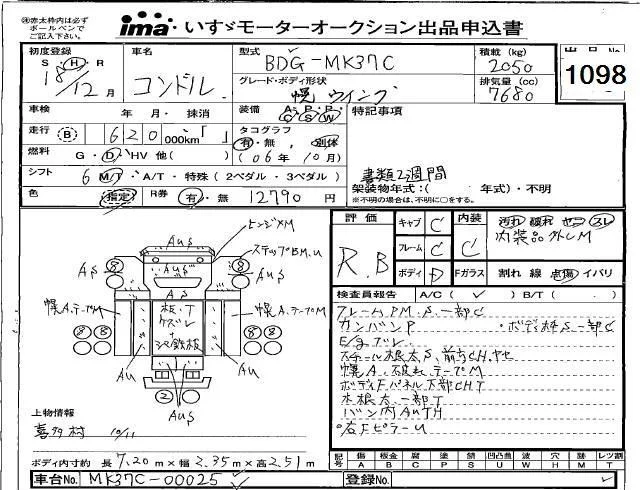 ㊟赤太枠内は必ず
ボールペンで
ご記入下さい。
ima いすゞモーターオークション出品申込書
初度登録 車名 型式 積載 (kg) 出品No.
S・H・R BDG-MK37C 2050
18/12月 コンドル グレード・ボディ形状 排気量 (cc) 1098
幌ウイング 7680
車検 年 月・抹消 装備 A/C P/S P/W 特記事項
走行 B 620 000km「 」 タコグラフ
有・無 別体
燃料 G・D・HV 他( ) (06年10月)
書類2週間
シフト 6 M/T・A/T・特殊 (2ペダル・3ペダル) 架装物年式:( 年式)・不明
※不明の場合は、不明に○をする。
色 指定 R券 有・無 12790円
評価 キャブ C 内装 汚れ 破れ コゲ スレ
R.B フレーム C C 内装品外しM
ボディ D Fガラス 割れ 線 点傷 イバリ
ヒンジXM
AuS
ステップBM.U
AS AS
AS
検査員報告 A/C( ✓ ) B/T( . )
幌A.テープM 幌A.テープM
フレームPM.S.一部C
カンバンP ・ボデ枠S一部C
E/gブレ
Au Au
幌A.破れテープM
ボディFパネル下部CHT
木根太.一部T
バン内AUTH
右FピラーU
AuS
上物情報
喜多村 10/11
ボディ内寸約 長7.20m×幅2.35m×高2.51m
記号 傷 板金 腐 塗 錆 凹凸曲 波 穴 跡 レツ割
A B C P S U W H M T
車台No. MK37C-00025 登録No.